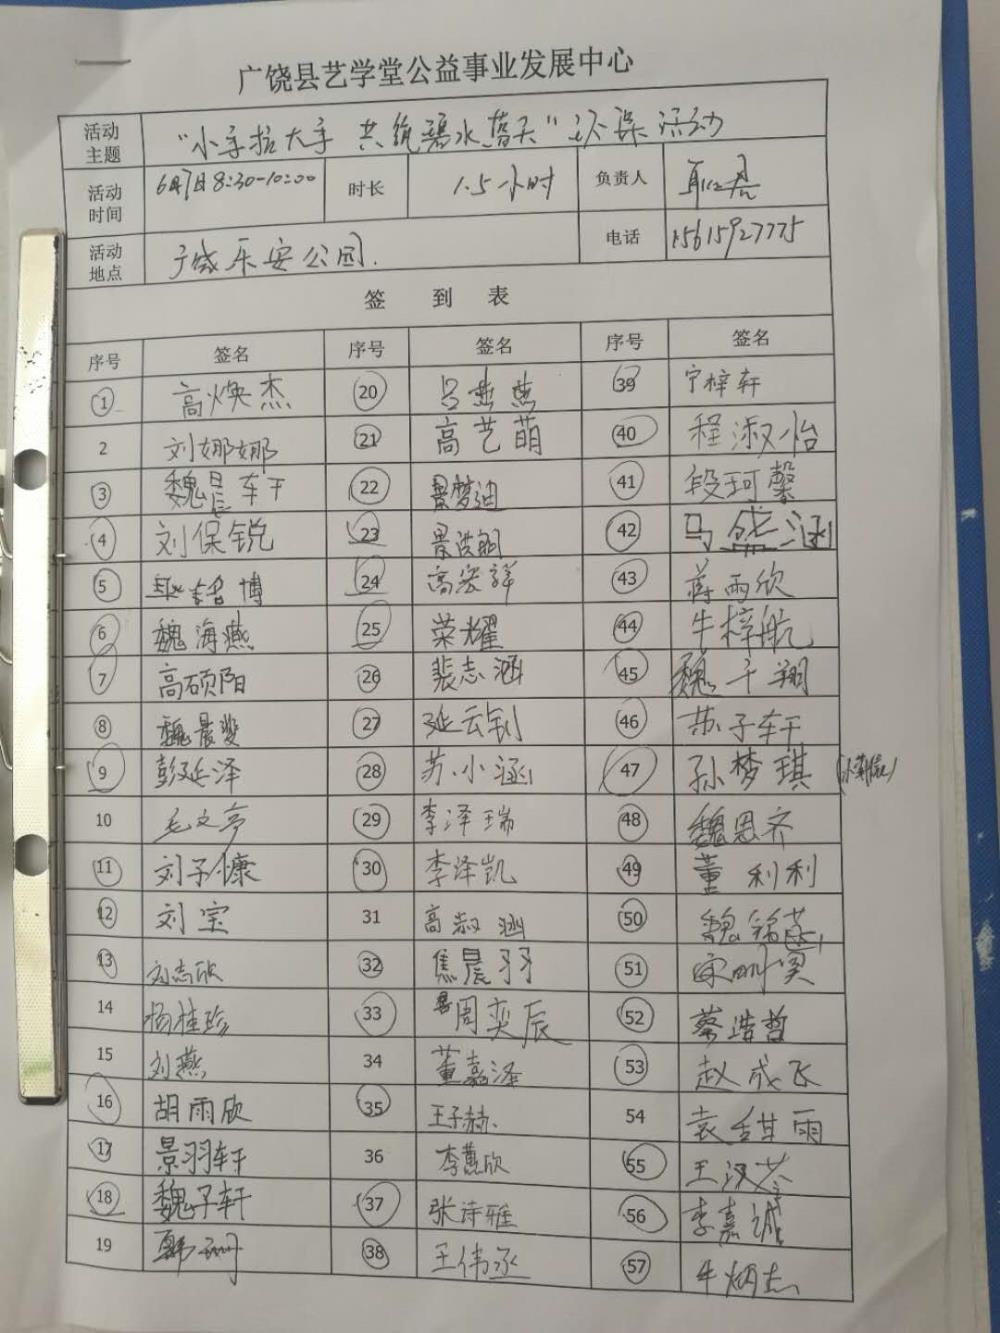 广饶县艺学堂公益事业发展中心
活动主题 "小手拉大手 共筑碧水蓝天" 环保活动
活动时间 6月7日8:30-10:00 时长 1.5小时 负责人
活动地点 广饶乐安公园. 电话 15615927775
签 到 表
序号 签名 序号 签名 序号 签名
1 高焕杰 20 吕燕燕 39 宁梓轩
2 刘娜娜 21 高艺萌 40 程淑怡
3 魏晨轩 22 景梦迪 41 段珂馨
4 刘保锐 23 景浩翔 42 马盛涵
5 耿铭博 24 高宏祥 43 蒋雨欣
6 魏海燕 25 荣耀 44 牛梓航
7 高硕阳 26 裴志涵 45 魏子翔
8 魏晨雯 27 延云钊 46 苏子轩
9 彭延泽 28 苏小涵 47 孙梦琪
10 毛文亭 29 李泽瑞 48 魏恩齐
11 刘子慷 30 李泽凯 49 董利利
12 刘宝 31 高淑涵 50 魏铭蕊
13 刘志欣 32 焦晨羽 51
14 杨桂珍 33 周奕辰 52 蔡浩哲
15 刘燕 34 董嘉泽 53 赵成飞
16 胡雨欣 35 王子赫. 54 袁甜雨
17 景羽轩 36 李蕙欣 55 王汉
18 魏子轩 37 张诗雅 56 李嘉诚
19 38 王伟丞 57 牛炳志